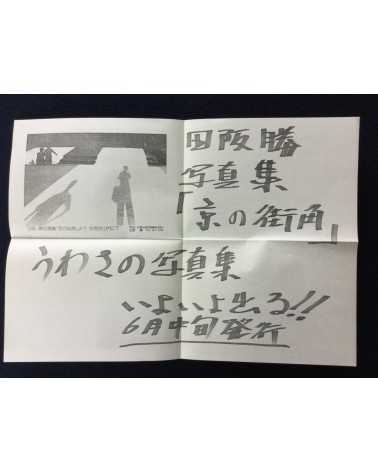 田阪勝
写真集
「京の街角」
うわさの写真集
いよいよ出る!!
6月中旬発行